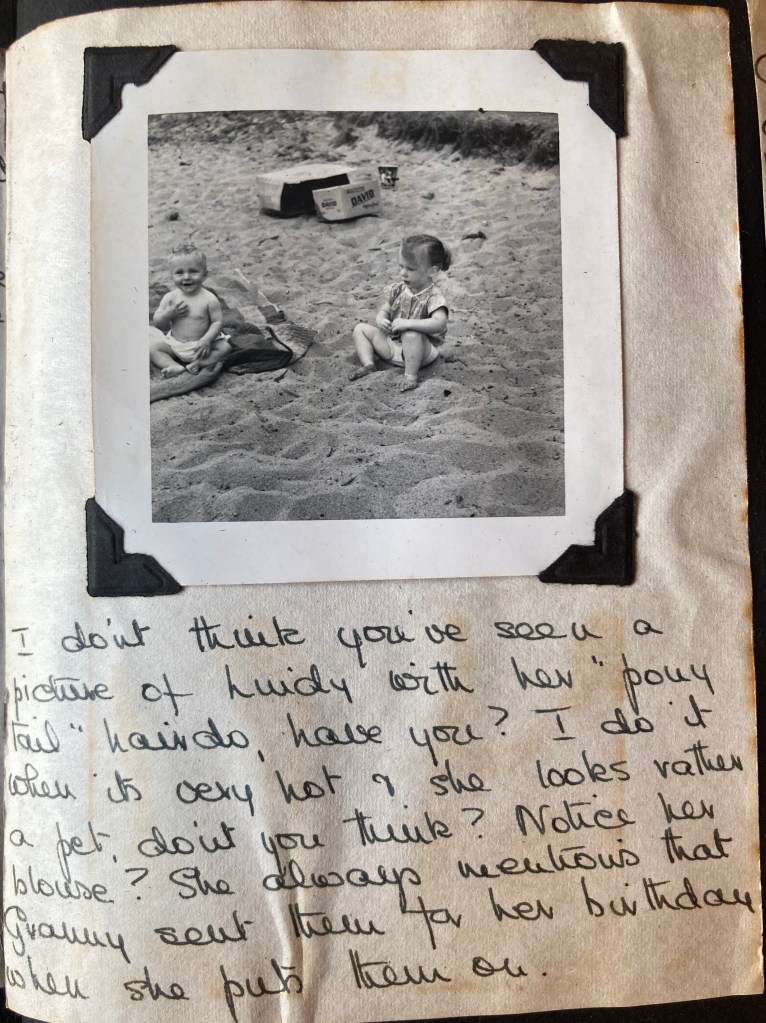 DAVID
DAVID
I don't think you've seen a
picture of Luidy with her "pony
tail" hairdo, have you? I do it
when its very hot & she looks rather
a pet, don't you think? Notice her
blouse? She always mentions that
Granny sent them for her birthday
when she puts them on.